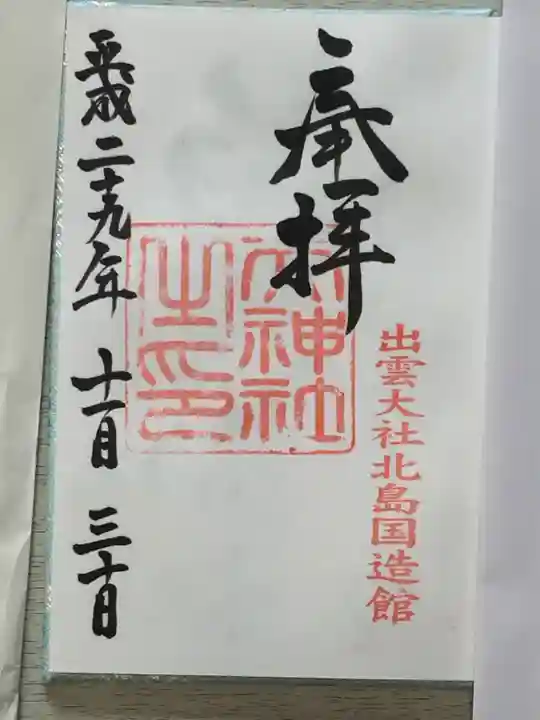 奉拝
出雲大社北島国造館
天神社之印
平成二十九年十一月三十日